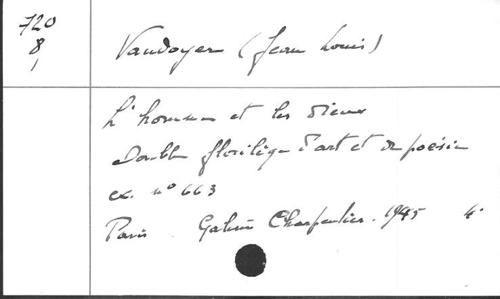 720
8
1
Vaudoyer (Jean Louis)
L'homme et les dieux
Double florilège d'art et de poésie
ex. nº 663
Paris Galerie Charpentier. 1945 4°